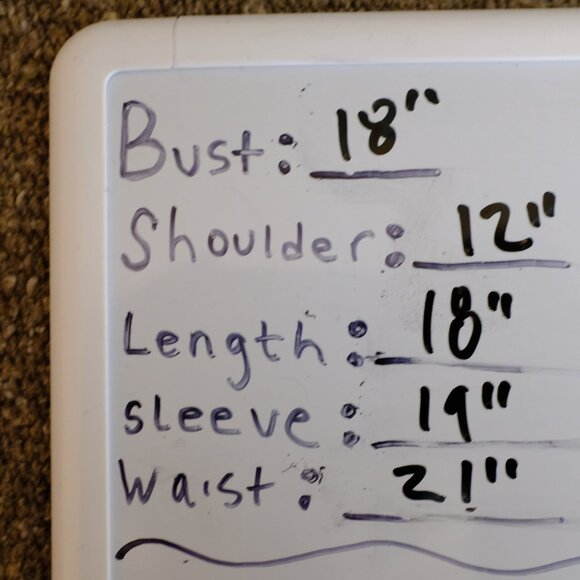 Bust: 18"
Shoulder: 12"
Length: 18"
sleeve: 19"
Waist: 21"'